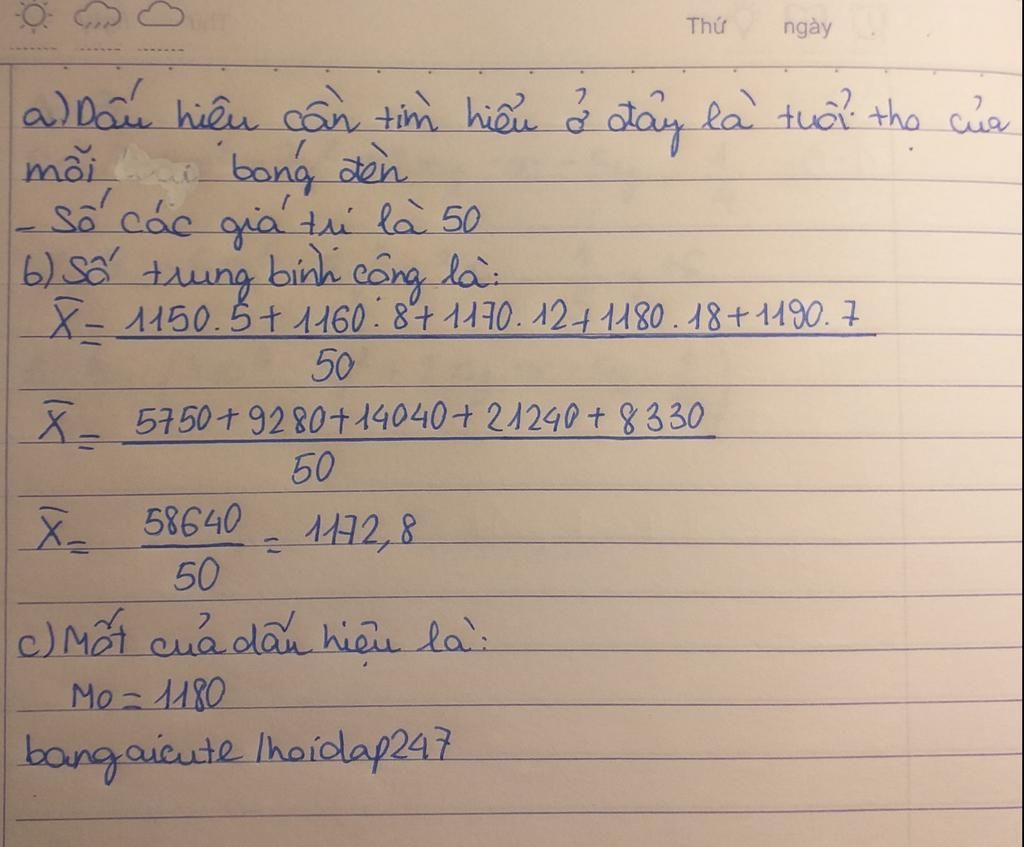 Thứ ngày
a) Dấu hiệu cần tìm hiểu ở đây là tuổi thọ của
mỗi bóng đèn
- Số các giá trị là 50
b) Số trung bình cộng là:
X̄ = 1150.5 + 1160.8 + 1170.12 + 1180.18 + 1190.7
50
X̄ = 5750 + 9280 + 14040 + 21240 + 8330
50
X̄ = 58640 = 1172,8
50
c) Mốt của dấu hiệu là:
Mo = 1180
bangaicute / hoidap247